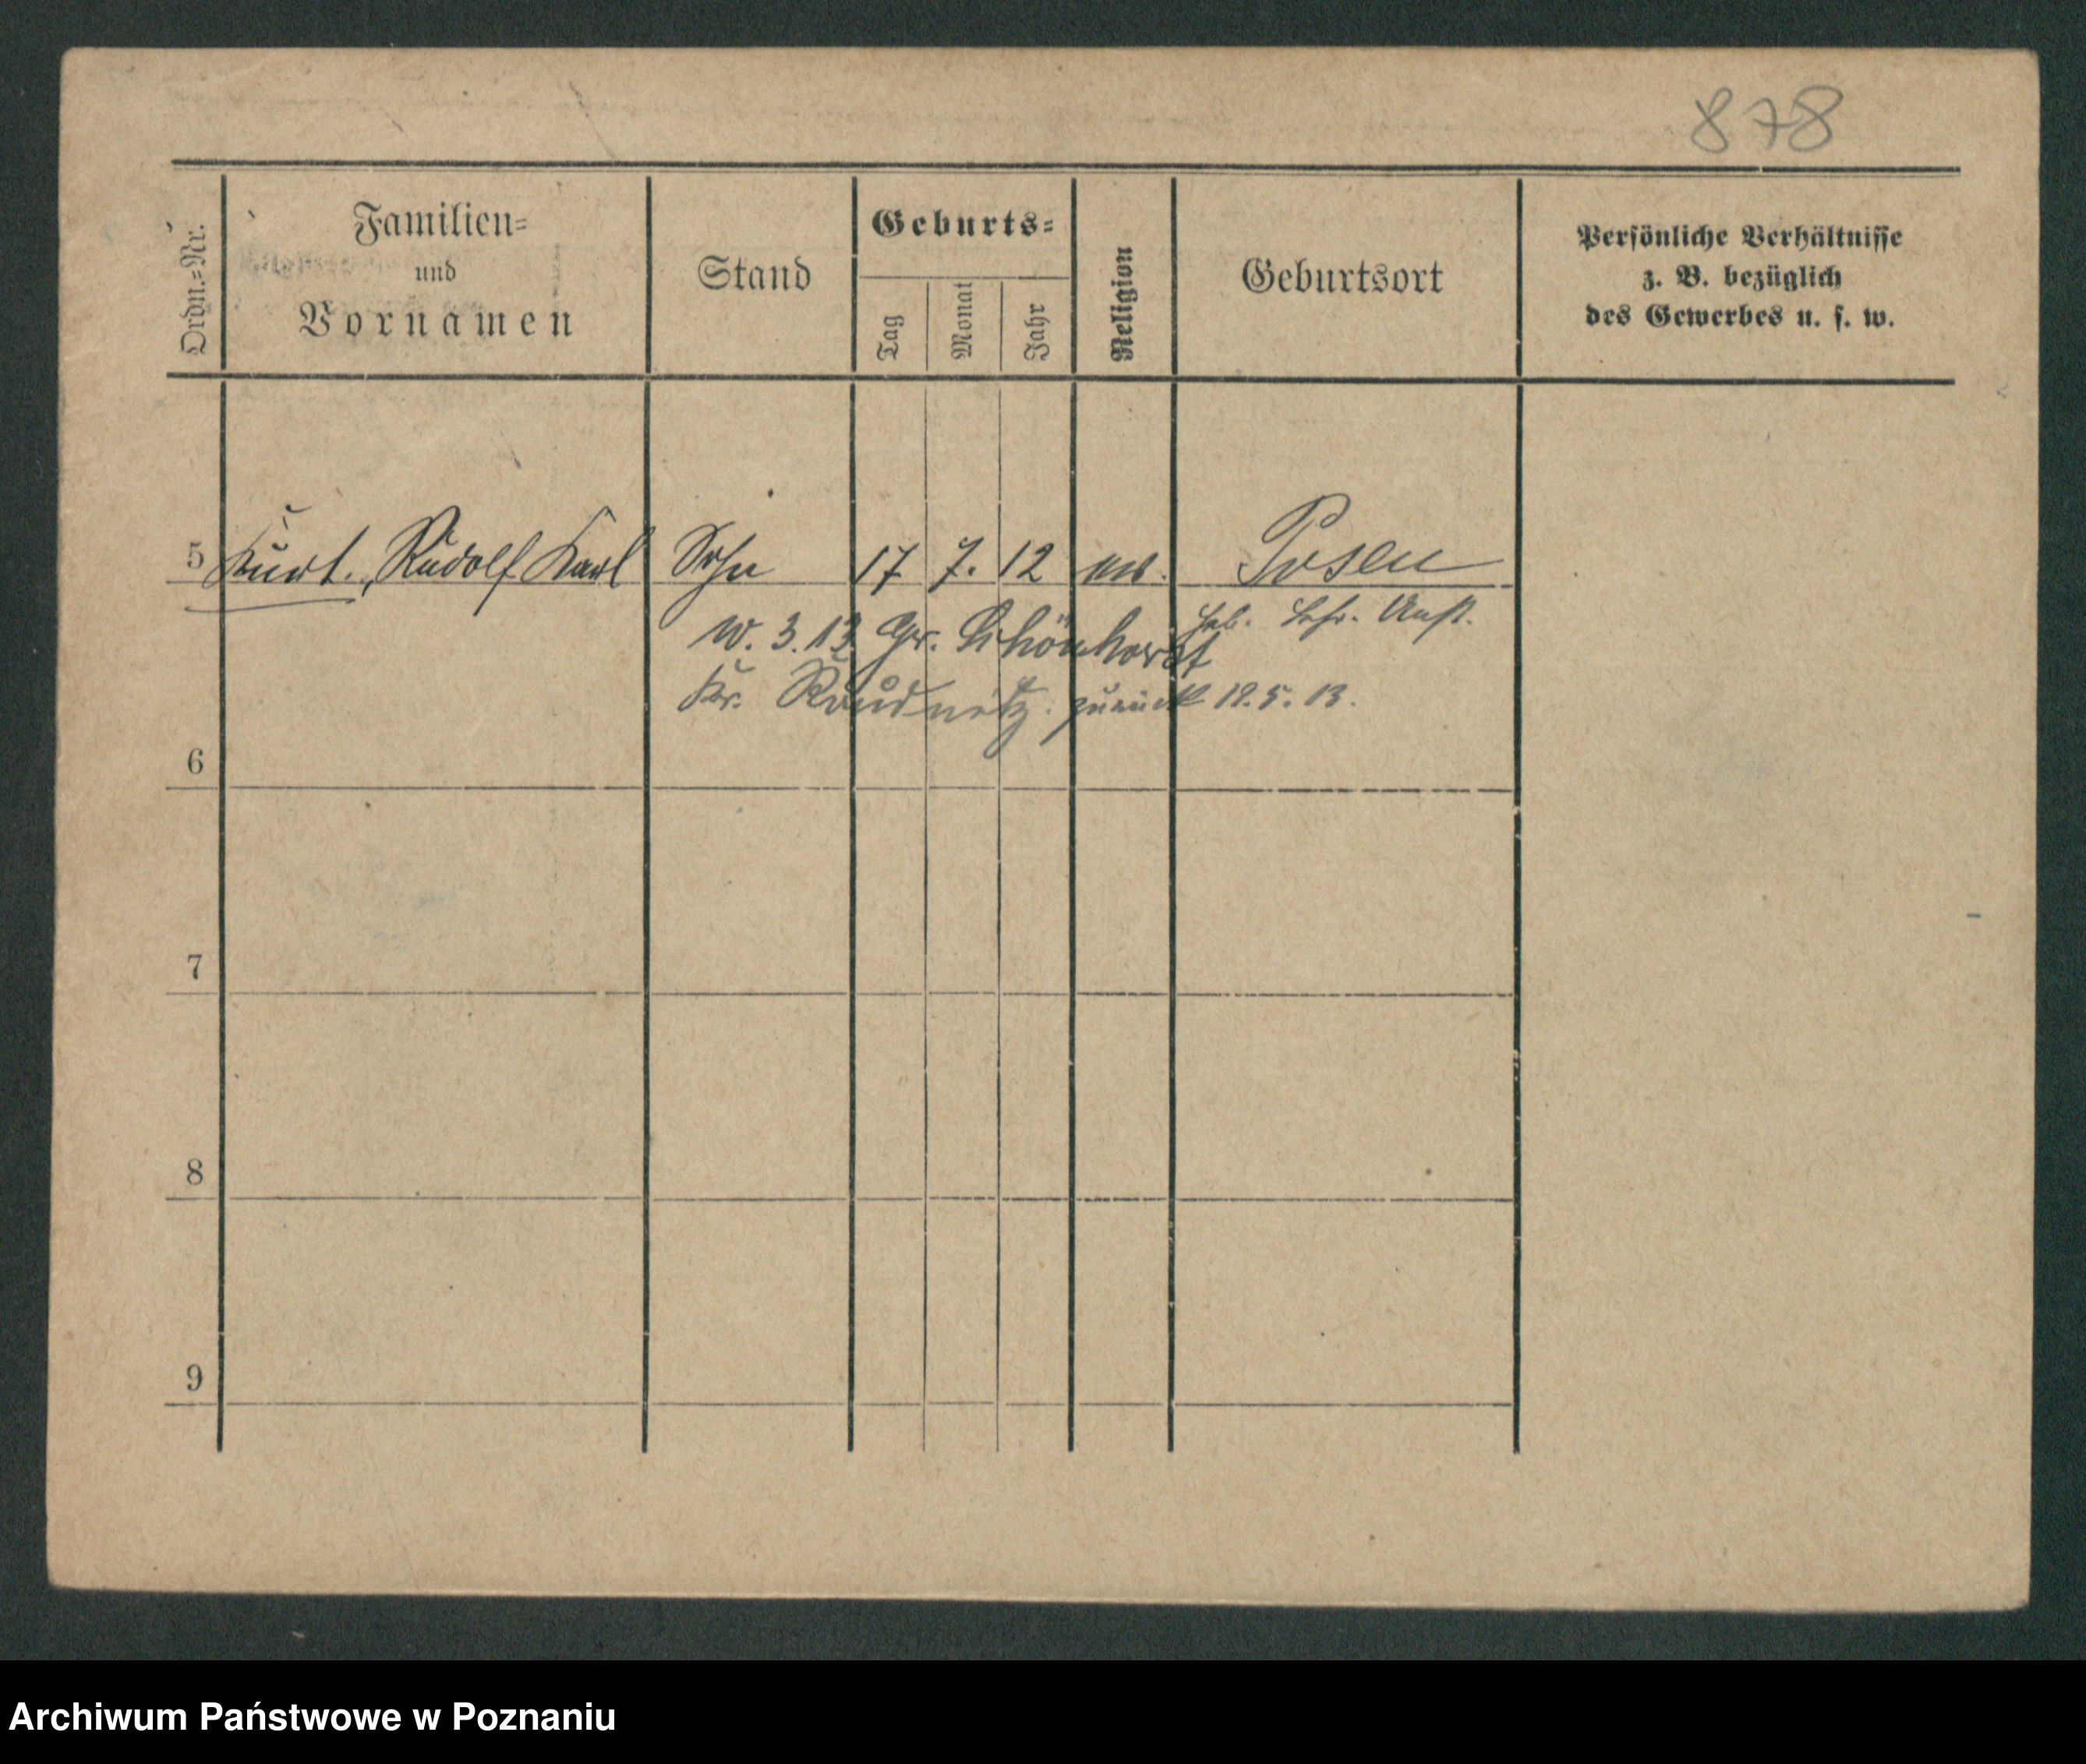 878
Ordn.=Nr.
Familien=
und
Vornamen
Stand
Geburts=
Tag
Monat
Jahr
Religion
Geburtsort
Persönliche Verhältnisse
z. B. bezüglich
des Gewerbes u. s. w.
5 Kurt, Rudolf Karl Sohn 17 7. 12 Posen
Heb. Lehr. Anst.
W. 3. 13 Gr. Schönhorst
Kr. zurück 19. 5. 13.
6
7
8
9
Archiwum Państwowe w Poznaniu